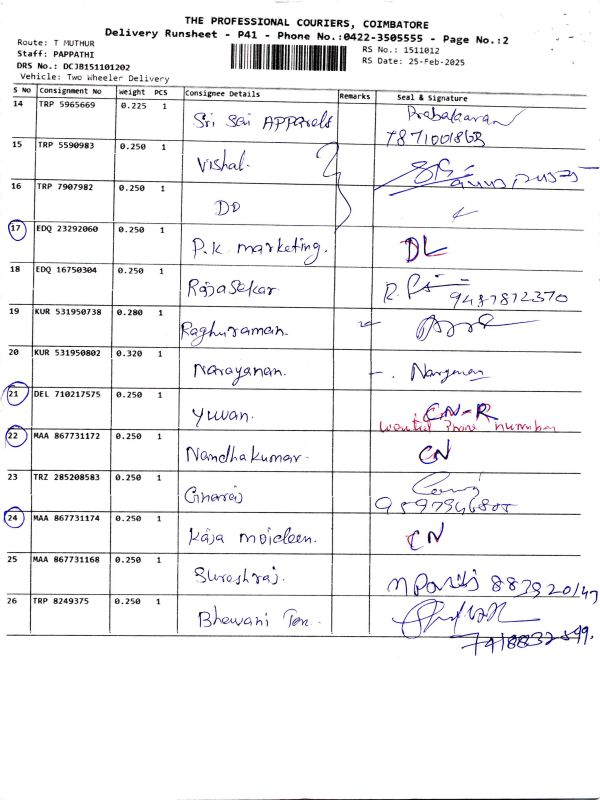 THE PROFESSIONAL COURIERS, COIMBATORE
Delivery Runsheet - P41 - Phone No.:0422-3505555 - Page No.:2
Route: T MUTHUR
Staff: PAPPATHI
DRS No.: DCJB151101202
Vehicle: Two Wheeler Delivery
RS No.: 1511012
RS Date: 25-Feb-2025
S No Consignment No Weight PCS Consignee Details Remarks Seal & Signature
14 TRP 5965669 0.225 1 Sri Sai APPArels Prabakaran
7871001868
15 TRP 5590983 0.250 1 Vishal.
16 TRP 7907982 0.250 1 DO
17 EDQ 23292060 0.250 1 P.K. marketing. DL
18 EDQ 16750304 0.250 1 Rajasekar R. 9487872370
19 KUR 531950738 0.280 1 Raghuraman.
20 KUR 531950802 0.320 1 Narayanan. Narayanan
21 DEL 710217575 0.250 1 Yuvan. CN-R
wanted Phone number
22 MAA 867731172 0.250 1 Nandhakumar. CN
23 TRZ 285208583 0.250 1
24 MAA 867731174 0.250 1 Kaja moideen. CN
25 MAA 867731168 0.250 1 Sureshraj.
26 TRP 8249375 0.250 1 Bhewani Tex.